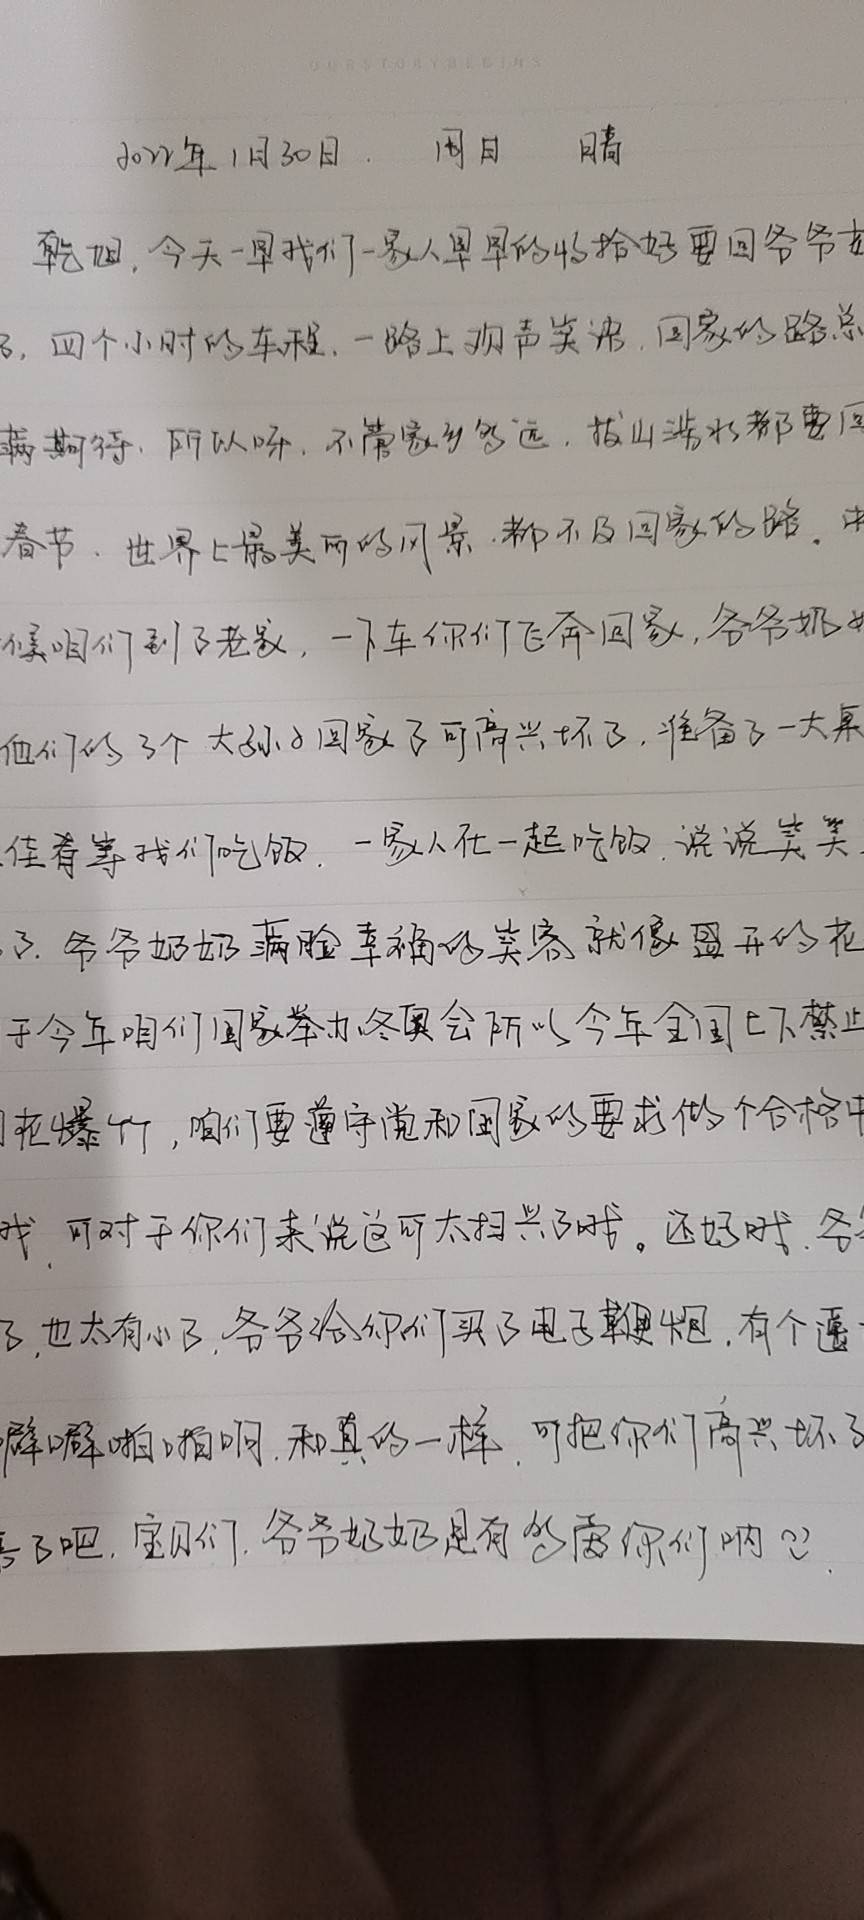 OURSTORYBEGINS
2022年1月30日. 周日 晴
乾旭,今天一早我们一家人早早的收拾好要回爷爷
了,四个小时的车程,一路上欢声笑语,回家的路总
满期待,所以呀,不管家乡多远,拔山涉水都要回
春节,世界上最美丽的风景,都不及回家的路。中
候咱们到了老家,一下车你们飞奔回家,爷爷奶奶
他们的3个大孙子回家了可高兴坏了,准备了一大桌
佳肴等我们吃饭,一家人在一起吃饭,说说笑笑
了,爷爷奶奶满脸幸福的笑容就像盛开的花
于今年咱们国家举办冬奥会所以今年全国上下禁止
花爆竹,咱们要遵守党和国家的要求做个合格中
哦,可对于你们来说这可太扫兴了哦。还好哦,爷爷
了,也太有心了,爷爷给你们买了电子鞭炮,有个遥
噼噼啪啪啊,和真的一样,可把你们高兴坏了
了吧,宝贝们,爷爷奶奶是有多爱你们呐